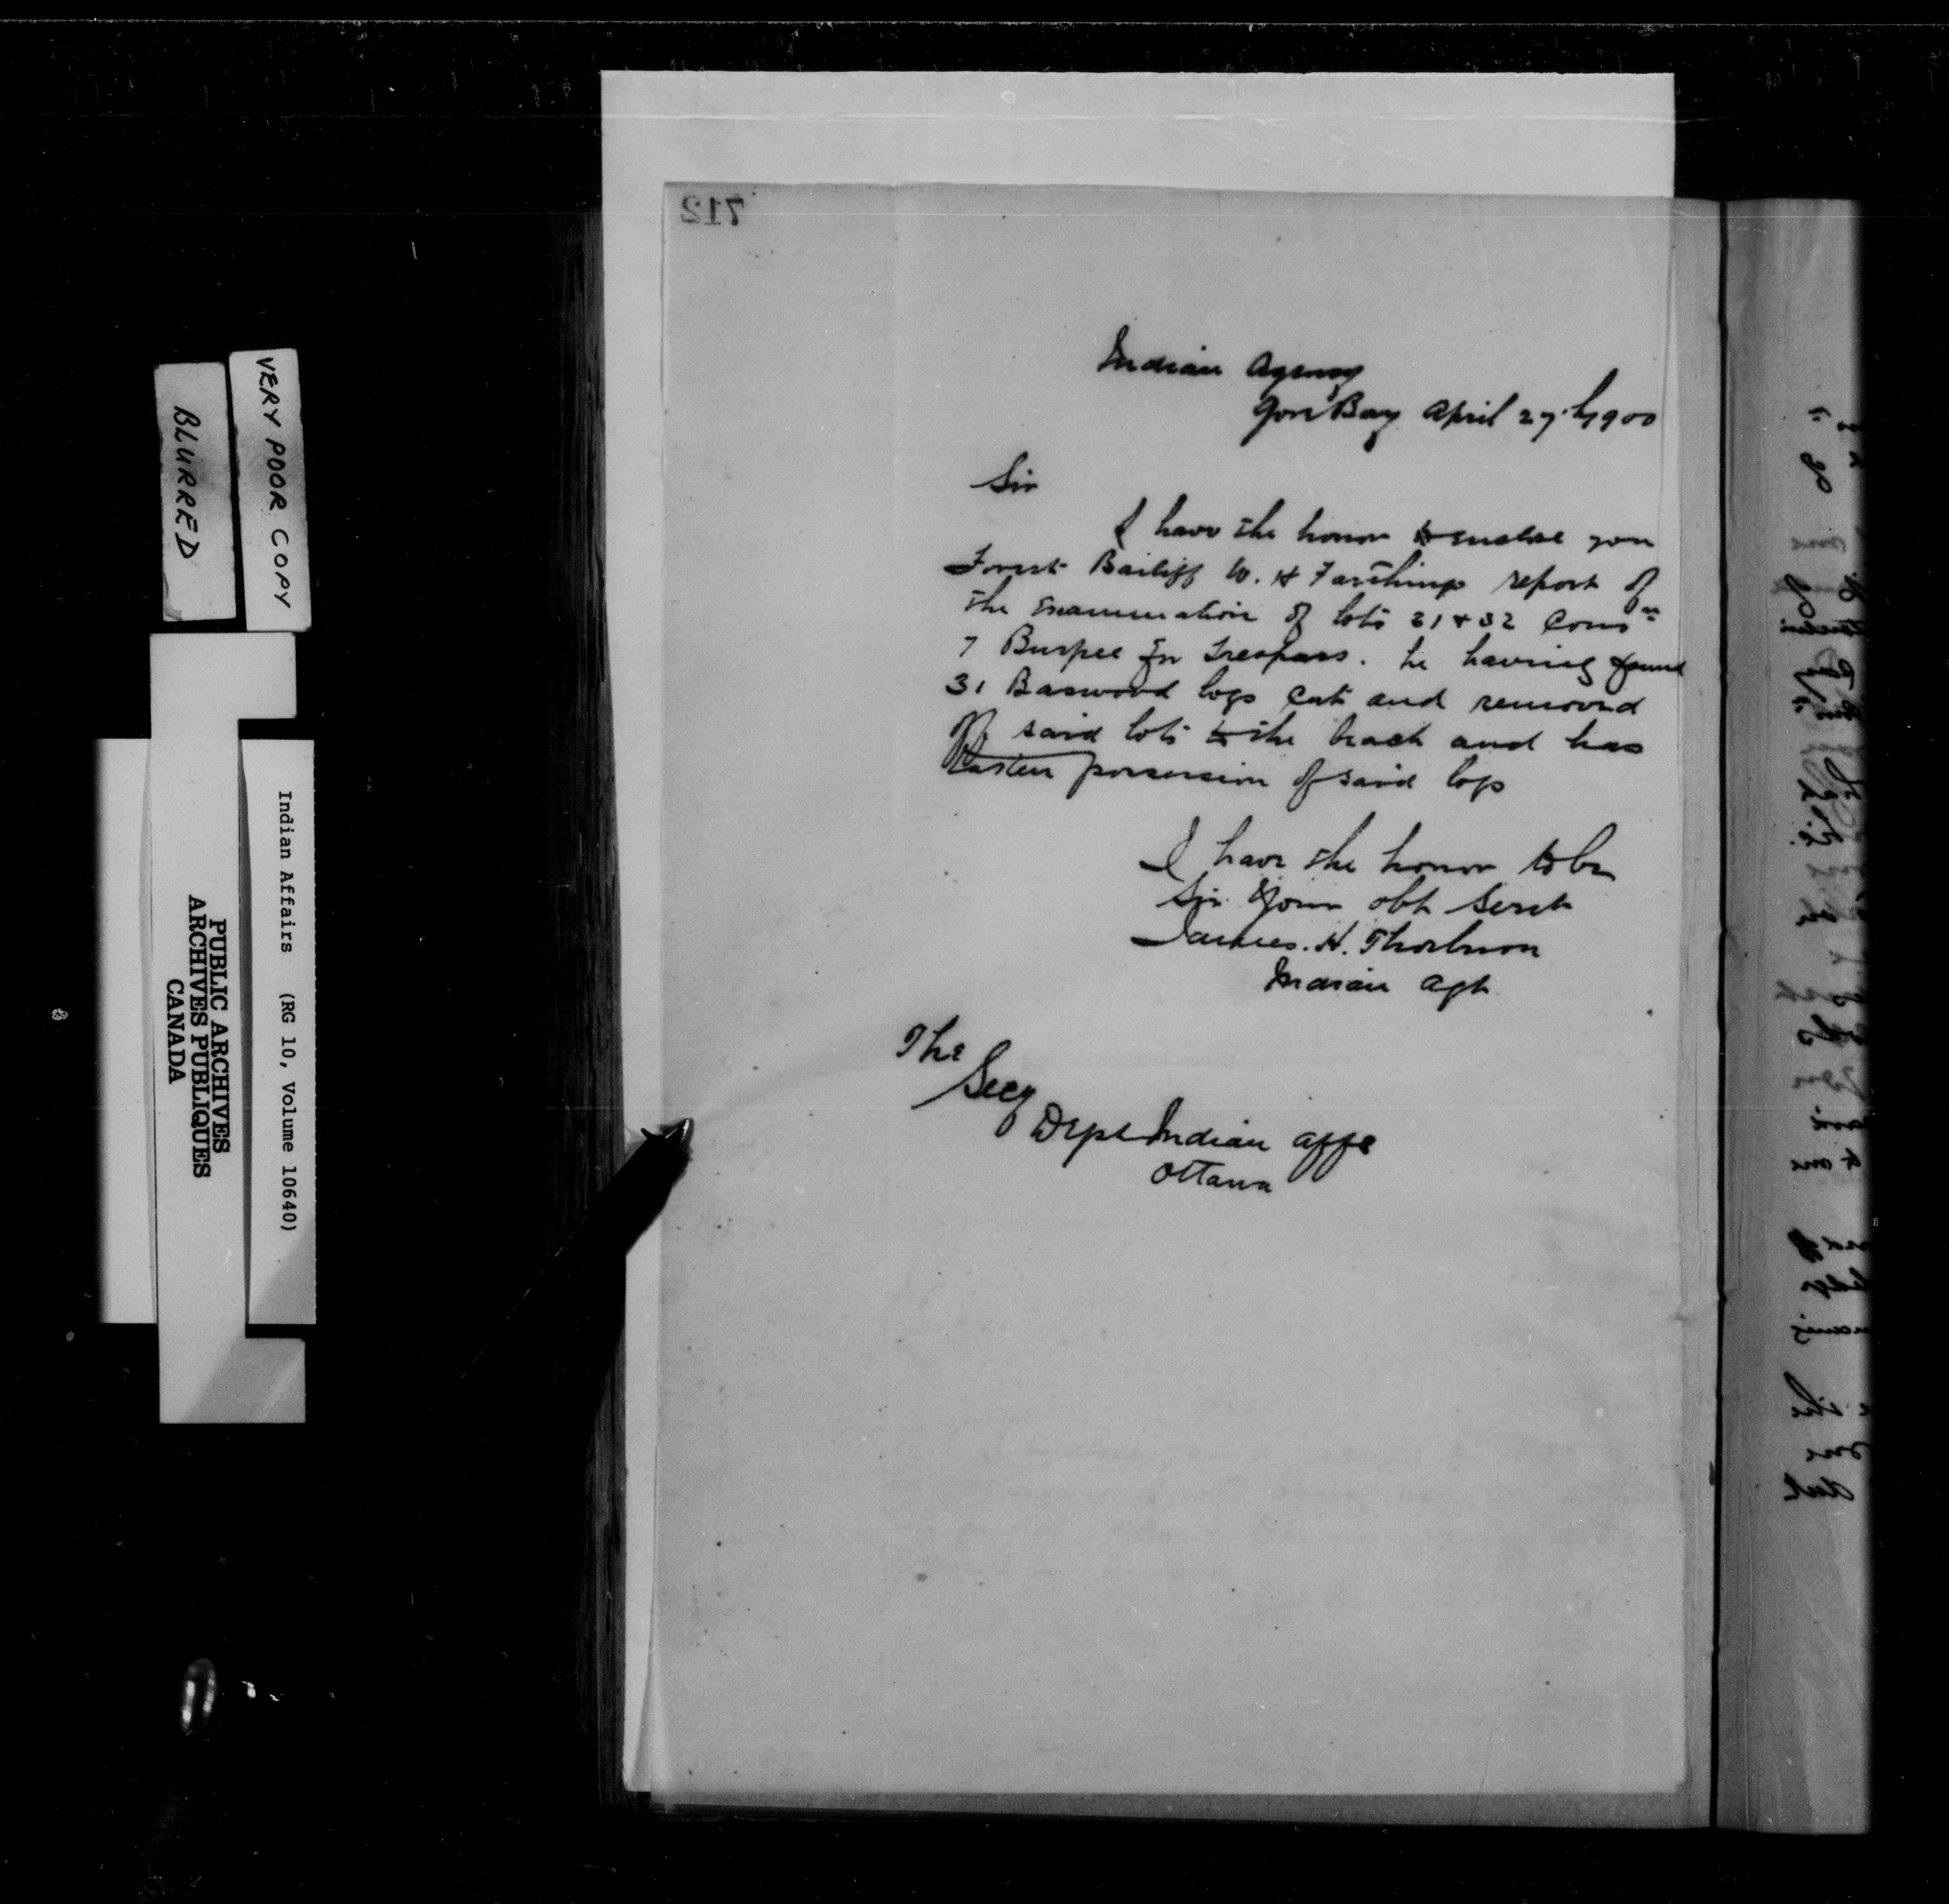 VERY POOR COPY
BLURRED
Indian Affairs (RG 10, Volume 10640)
PUBLIC ARCHIVES
ARCHIVES PUBLIQUES
CANADA
712
Indian Agency
Gore Bay April 27th 1900
Sir
I have the honor to enclose you
Forest Bailiff W. H Farthings report of
the Examination of lots 31 & 32 Conn
7 Burpee for Trespass. he having found
31 Baswood logs Cut and removed
off said lots to the beach and has
tasken possession of said logs
I have the honor to be
Sir Your obt Servt
James. H. Thorburn
Indian Agt
The
Secy
Dept Indian Affs
Ottawa